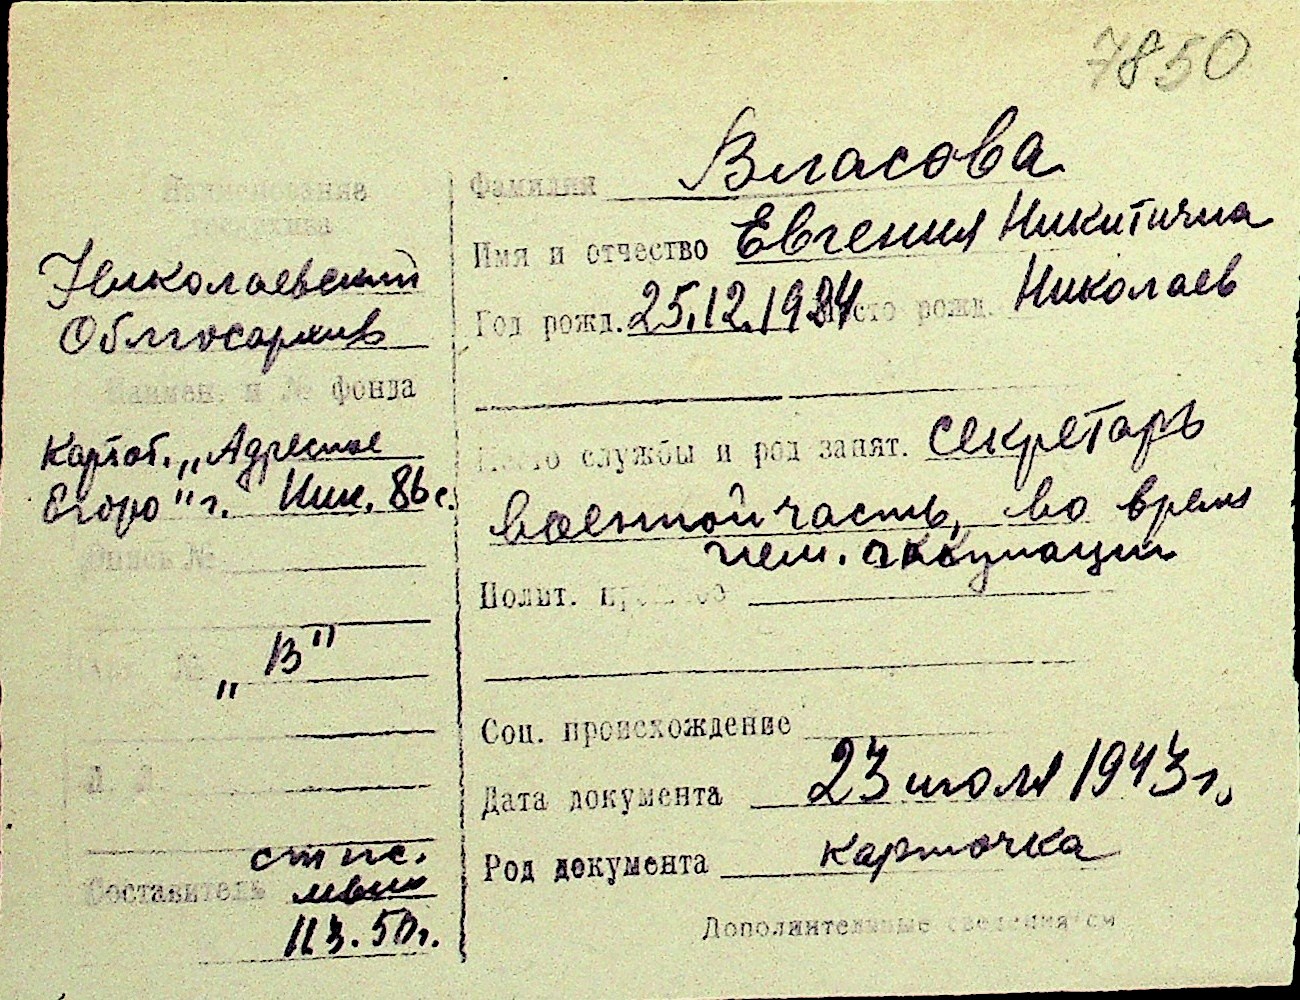 7850
Наименование
госархива
Николаевский
Облгосархив
Наимен. и № фонда
Картот. „Адресное
бюро" г. Ник. 86 с.
Опись №
„В"
Составитель
11 3. 50 г.
Фамилия Власова
Имя и отчество Евгения Никитична
Год рожд. 25.12.1924 Место рожд. Николаев
Место службы и род занят. секретарь
военной часть, во время
нем. оккупации
Полит.
Соц. происхождение
Дата документа 23 июля 1943 г.
Род документа карточка
Дополнительные сведения см